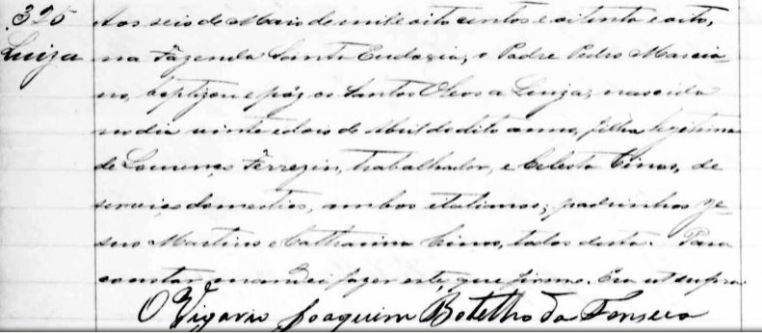 325 Aos seis de Maio de mil e oito centos e oitenta e oito,
Luiza na Fazenda Santa Eudoxia, o Padre Pedro Marcia-
no, baptizou e pôz os Santos Oleos a Luiza, nascida
no dia vinte e dois de Abril do dito anno, filha legitima
de Lourenço Ferrezin, trabalhador, e Celesta, de
serviços domesticos, ambos italianos; padrinhos
Martins e Catharina, todos desta. Para
constar mandei fazer este, que firmo. Era ut supra
O Vigario Joaquim Botelho da Fonseca